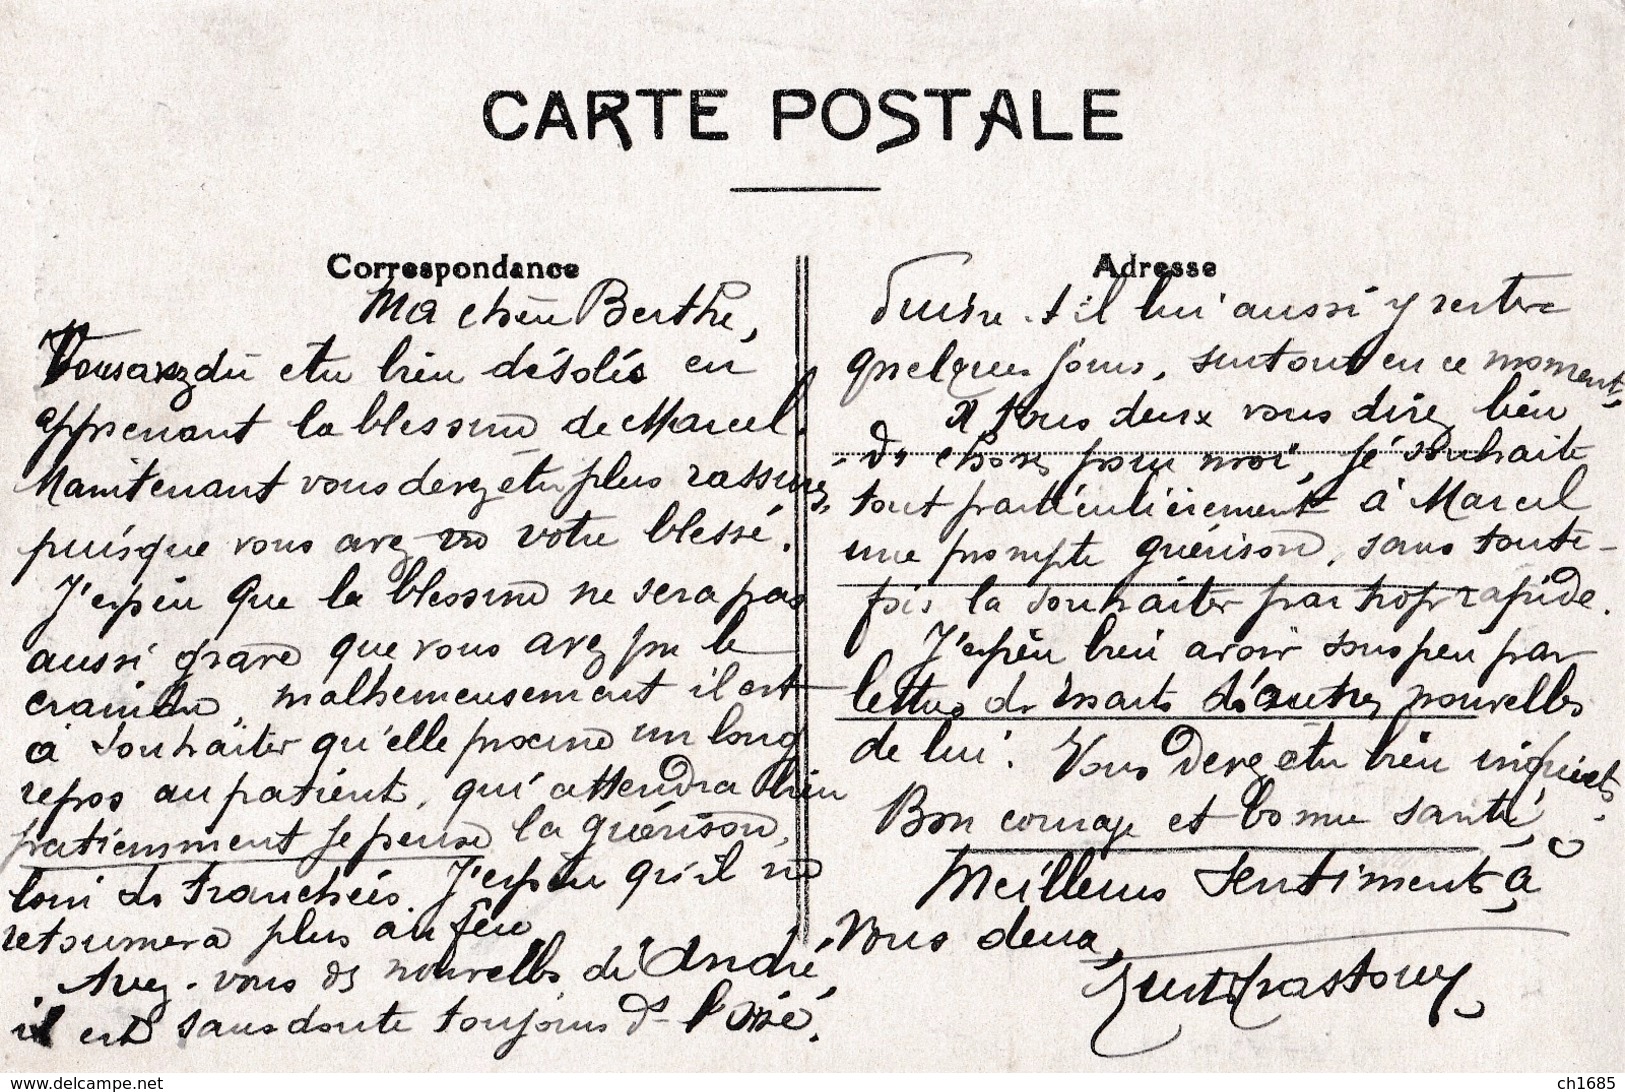 CARTE POSTALE
Correspondance
Ma chère Berthe,
Vous avez dû être bien désolée en
apprenant la blessure de Marcel.
Maintenant vous devez être plus rassurée,
puisque vous avez vu votre blessé.
J'espère que la blessure ne sera pas
aussi grave que vous avez pu le
craindre, malheureusement il est
à souhaiter qu'elle procure un long
repos au patient, qui attendra bien
patiemment je pense la guérison,
loin des tranchées. J'espère qu'il ne
retournera plus au feu
Avez-vous des nouvelles de André,
il est sans doute toujours ds l'Oise.
Adresse
Puisse-t-il lui aussi y rester
quelques jours, surtout en ce moment,
A tous deux vous direz bien
ds choses pour moi, je souhaite
tout particulièrement à Marcel
une prompte guérison, sans toute-
fois la souhaiter par trop rapide.
J'espère bien avoir sous peu par
lettres de d'autres nouvelles
de lui. Vous devez être bien inquiets.
Bon courage et bonne santé,
Meilleurs sentiments à
vous deux,
www.delcampe.net
ch1685